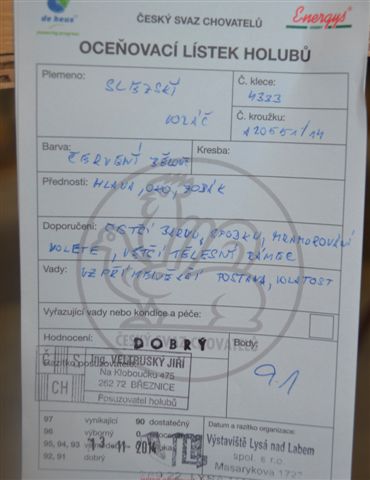 de heus
powering progress
ČESKÝ SVAZ CHOVATELŮ
Energys
OCEŇOVACÍ LÍSTEK HOLUBŮ
Plemeno: SLEZSKÝ
VOLÁČ
Č. klece:
4333
Č. kroužku:
A20551/14
Barva:
ČERVENÝ BĚLOUŠ
Kresba:
Přednosti: HLAVA, OKO, ZOBÁK
Doporučení: ČISTŠÍ BARVU, SPODKU, MRAMOROVÁNÍ
VOLETE, VĚTŠÍ TĚLESNÝ RÁMEC
Vady: VZPŘÍMENĚJŠÍ POSTAVA, VOLATOST
Vyřazující vady nebo kondice a péče:
Hodnocení: DOBRÝ
Body:
91
Ing. VELTRUSKÝ JIŘÍ
Na Kloboučku 475
262 72 BŘEZNICE
Posuzovatel holubů
Č S
CH
97 vynikající 90 dostatečný
96 výborný 0
95, 94, 93
92, 91 dobrý
13 -11- 2014
Datum a razítko organizace:
Výstaviště Lysá nad Labem
spol. s r.o.
Masarykova 1727